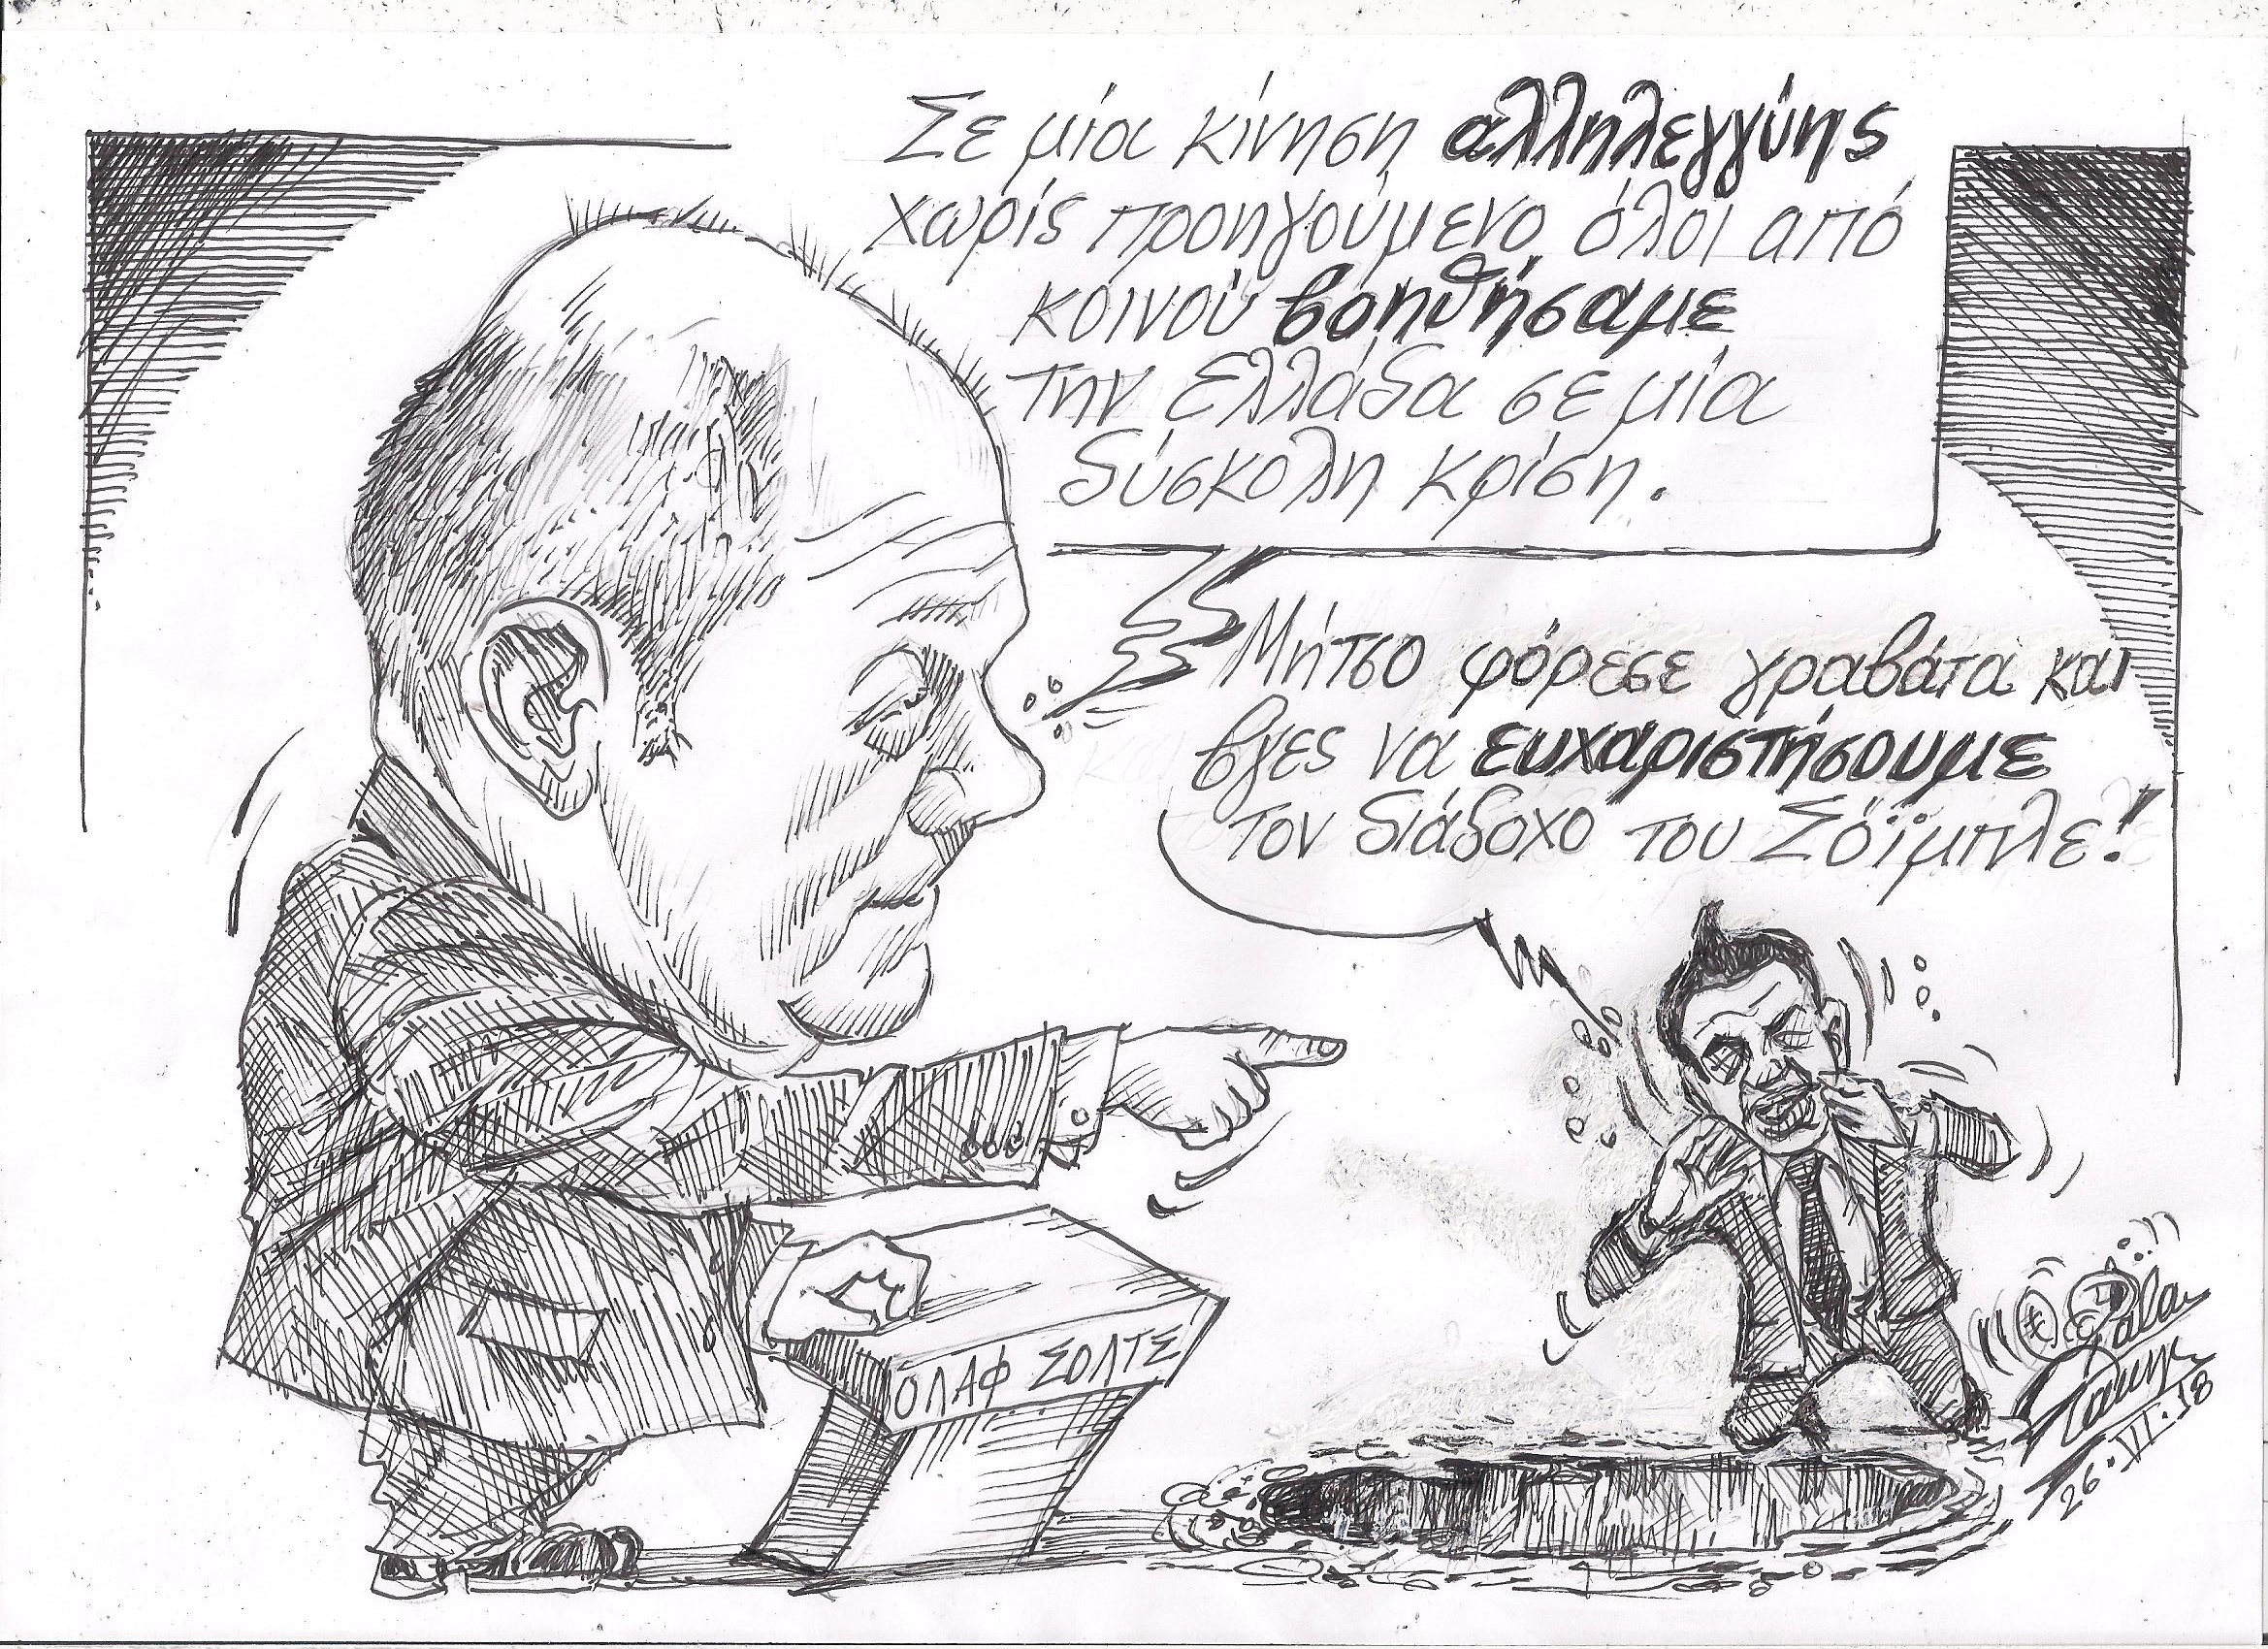 Σε μία κίνηση αλληλεγγύης
χωρίς προηγούμενο, όλοι από
κοινού βοηθήσαμε
την Ελλάδα σε μία
δύσκολη κρίση.
Μήτσο φόρεσε γραβάτα και
βγες να ευχαριστήσουμε
τον διάδοχο του Σόϊμπλε!
ΟΛΑΦ ΣΟΛΤΣ
26.VI.18